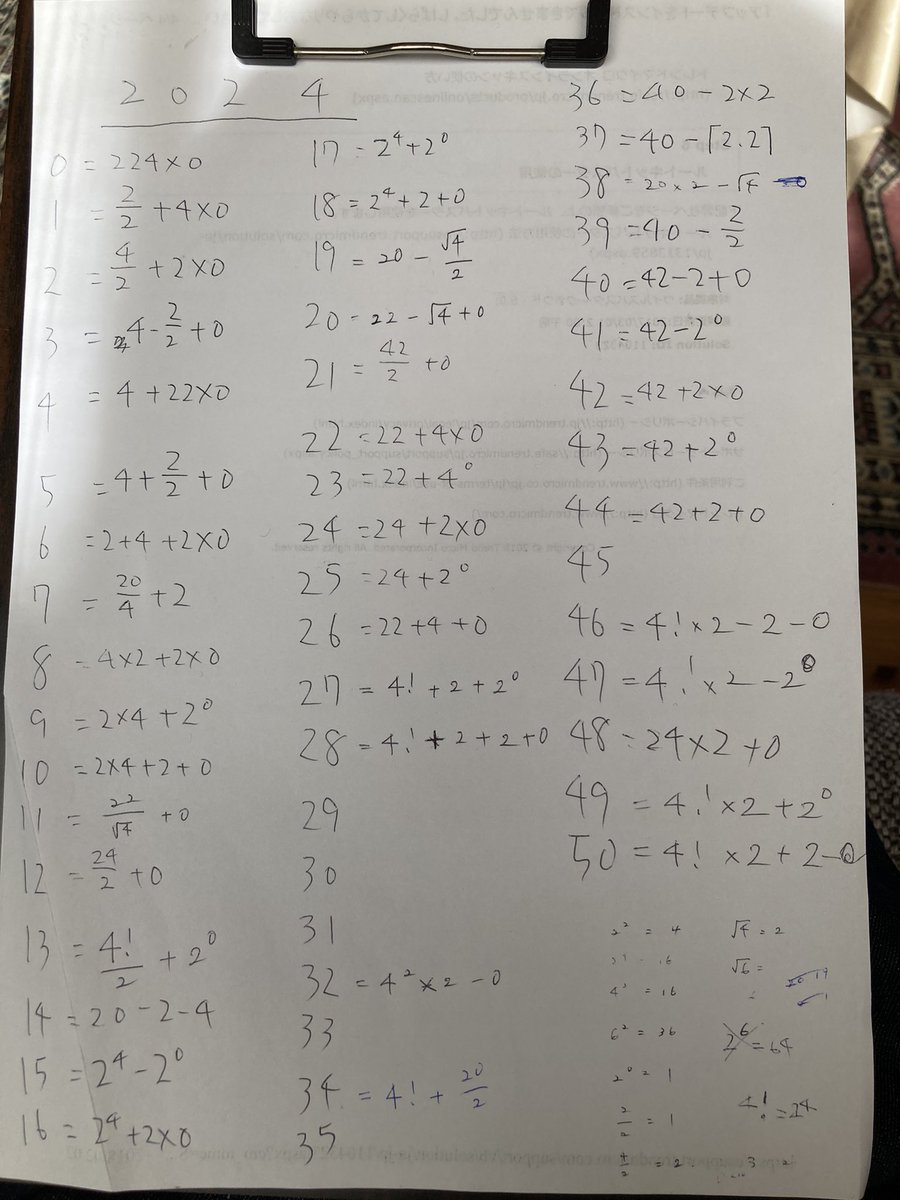 2 0 2 4
0 = 224×0
1 = 2/2 + 4×0
2 = 4/2 + 2×0
3 = 4 - 2/2 + 0
4 = 4 + 22×0
5 = 4 + 2/2 + 0
6 = 2+4+2×0
7 = 20/4 + 2
8 = 4×2+2×0
9 = 2×4+2⁰
10 = 2×4+2+0
11 = 22/√4 + 0
12 = 24/2 + 0
13 = 4!/2 + 2⁰
14 = 20-2-4
15 = 2⁴-2⁰
16 = 2⁴+2×0
17 = 2⁴+2⁰
18 = 2⁴+2+0
19 = 20 - √4/2
20 = 22-√4+0
21 = 42/2 + 0
22 = 22+4×0
23 = 22+4⁰
24 = 24+2×0
25 = 24+2⁰
26 = 22+4+0
27 = 4!+2+2⁰
28 = 4!+2+2+0
29
30
31
32 = 4²×2-0
33
34 = 4! + 20/2
35
36 = 40-2×2
37 = 40-⌈2.2⌉
38 = 20×2-√4
39 = 40 - 2/2
40 = 42-2+0
41 = 42-2⁰
42 = 42+2×0
43 = 42+2⁰
44 = 42+2+0
45
46 = 4!×2-2-0
47 = 4!×2-2⁰
48 = 24×2+0
49 = 4!×2+2⁰
50 = 4!×2+2-0
2² = 4
4² = 16
6² = 36
2⁰ = 1
2/2 = 1
4/2 = 2
√4 = 2
√6 =
2⁶ = 64
4! = 24